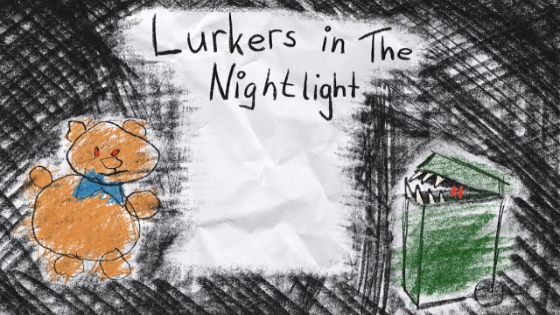 Lurkers in The
Nightlight